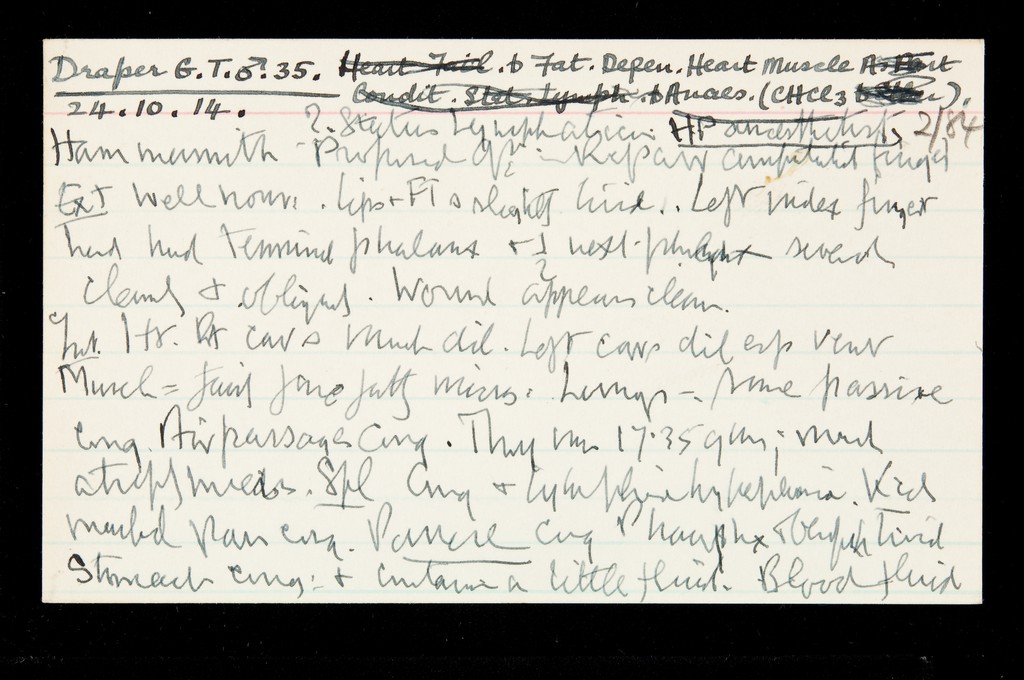 Draper G.T. ♂. 35. Heart Fail. b Fat. Degen. Heart Muscle
24.10.14. Condit. Stat. Lymph. b Anaes. (CHCl3 ).
? Status Lymphaticus. HP anaesthetist, 2/84
Hammersmith - Proposed opn - Repair amputated finger
Ext Well nour: . Lips + FTs slightly livid.. Left index finger
had had terminal phalanx + ½ next phalanx severed
cleanly & obliquely. Wound appears clean.
Int. Ht. Rt cavs much dil. Left cavs dil esp vent
Muscle = fatty micros. Lungs - some passive
cong. Air passages cong. Thymus 17.35 gm;
atrophy micros. Spl cong + lymphoid hyperplasia. Kids
marked pass cong. Pancre cong Pharynx & Oesoph livid
Stomach cong: & contains a little fluid. Blood fluid